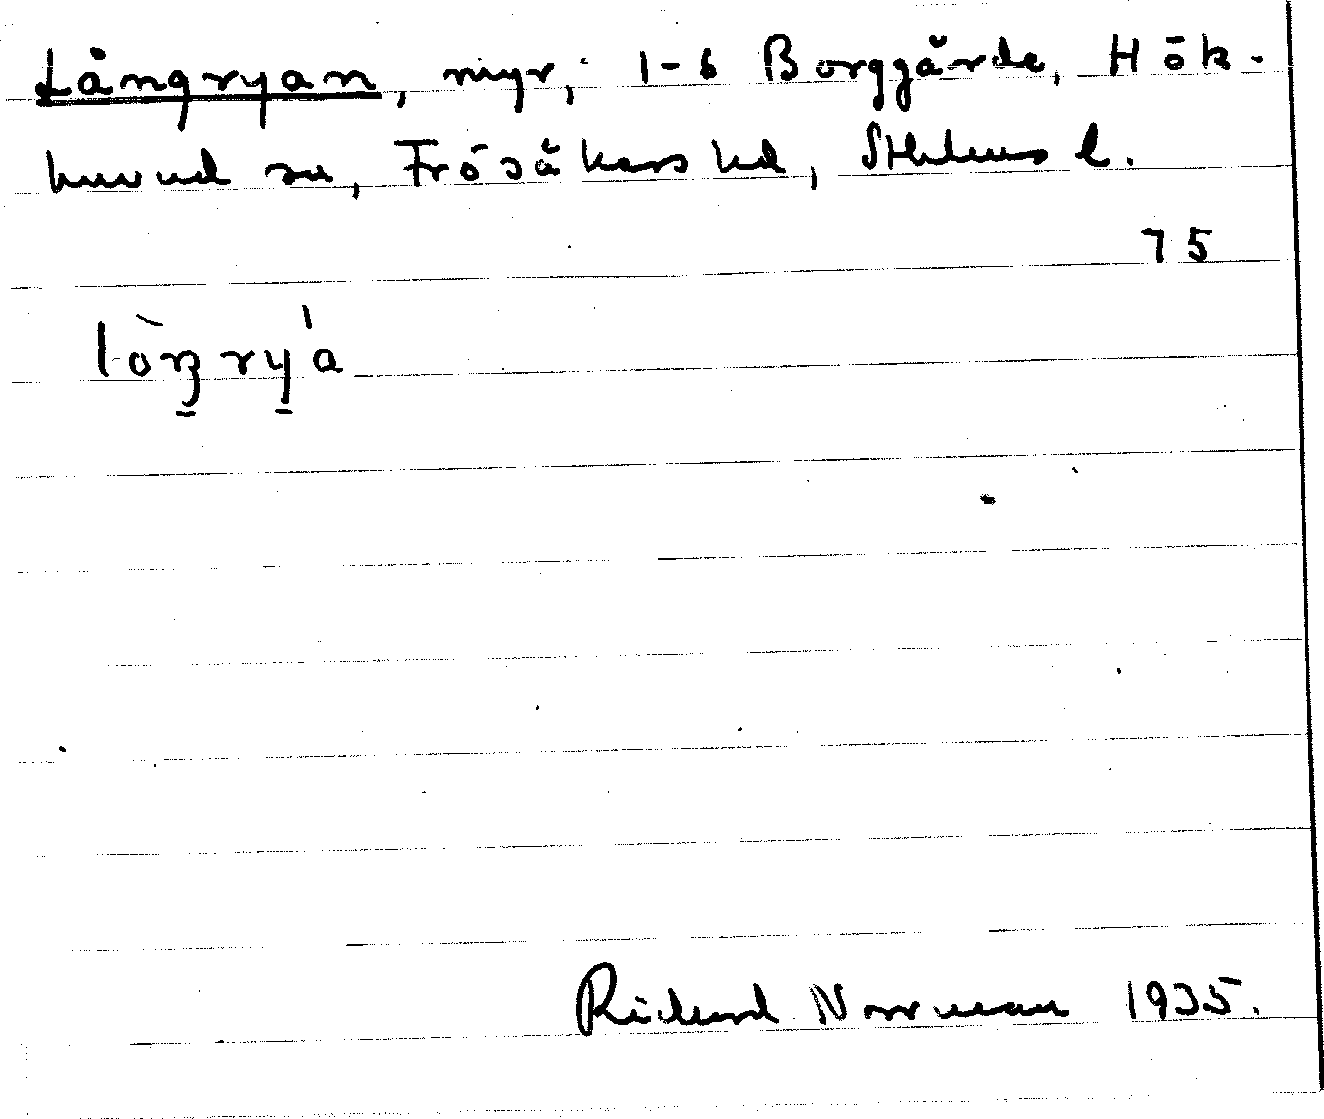 Långryan, myr, 1-6 Borggårde, Hök-
huvud sn, Frösåkers hd, Sthlms l.
75
lòŋ̱rý̱a
Richard Norrman 1935.